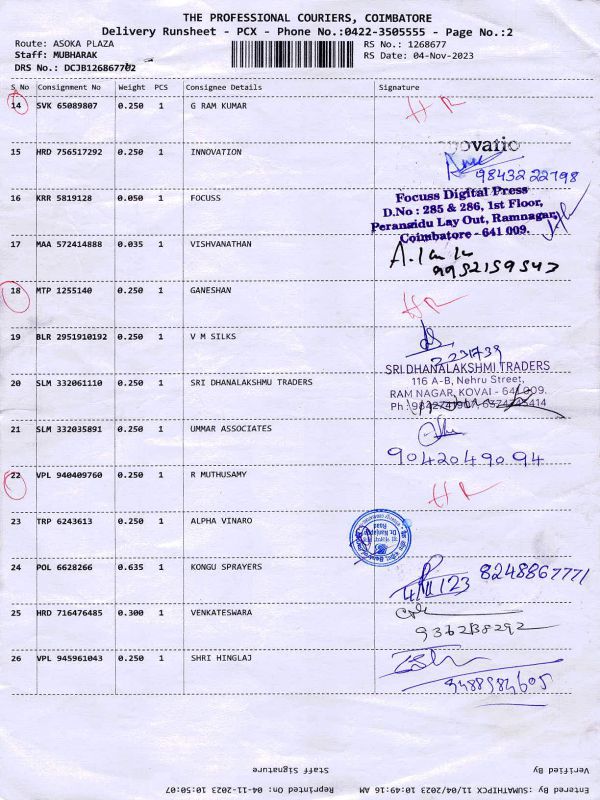 THE PROFESSIONAL COURIERS, COIMBATORE
Delivery Runsheet - PCX - Phone No.:0422-3505555 - Page No.:2
Route: ASOKA PLAZA
RS No.: 1268677
Staff: MUBHARAK
RS Date: 04-Nov-2023
DRS No.: DCJB126867702
S No Consignment No Weight PCS Consignee Details Signature
14 SVK 65089807 0.250 1 G RAM KUMAR HR
15 HRD 756517292 0.250 1 INNOVATION
98432 22798
16 KRR 5819128 0.050 1 FOCUSS
Focuss Digital Press
D.No : 285 & 286, 1st Floor,
Peranaidu Lay Out, Ramnagar,
Coimbatore - 641 009.
17 MAA 572414888 0.035 1 VISHVANATHAN
18 MTP 1255140 0.250 1 GANESHAN HR
19 BLR 2951910192 0.250 1 V M SILKS
20 SLM 332061110 0.250 1 SRI DHANALAKSHMU TRADERS
SRI DHANALAKSHMI TRADERS
116 A-B, Nehru Street,
RAM NAGAR, KOVAI - 641 009.
21 SLM 332035891 0.250 1 UMMAR ASSOCIATES
9042049094
22 VPL 940409760 0.250 1 R MUTHUSAMY HR
23 TRP 6243613 0.250 1 ALPHA VINARO
24 POL 6628266 0.635 1 KONGU SPRAYERS
8248867771
25 HRD 716476485 0.300 1 VENKATESWARA
26 VPL 945961043 0.250 1 SHRI HINGLAJ
Staff Signature Verified By
Reprinted On: 04-11-2023 10:50:07 Entered By :SUMATHIPCX 11/04/2023 10:49:16 AM